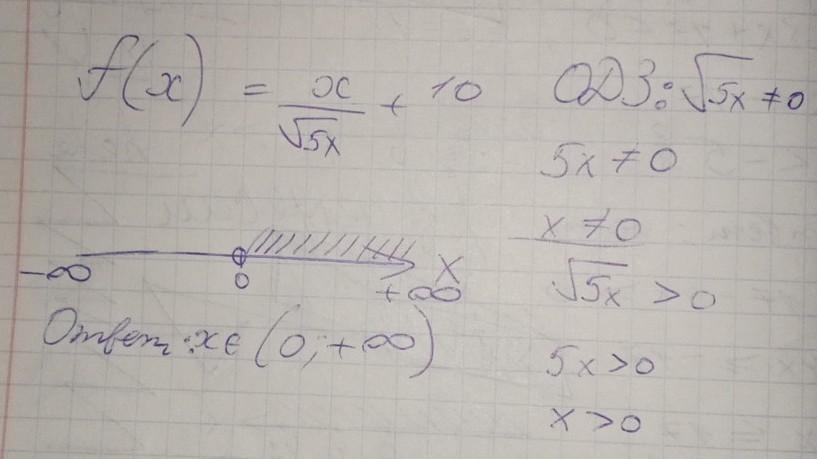 f(x) = x/√5x + 10
ОДЗ: √5x ≠ 0
5x ≠ 0
x ≠ 0
√5x > 0
5x > 0
x > 0
-∞ 0 +∞ x
Ответ: x ∈ (0; +∞)